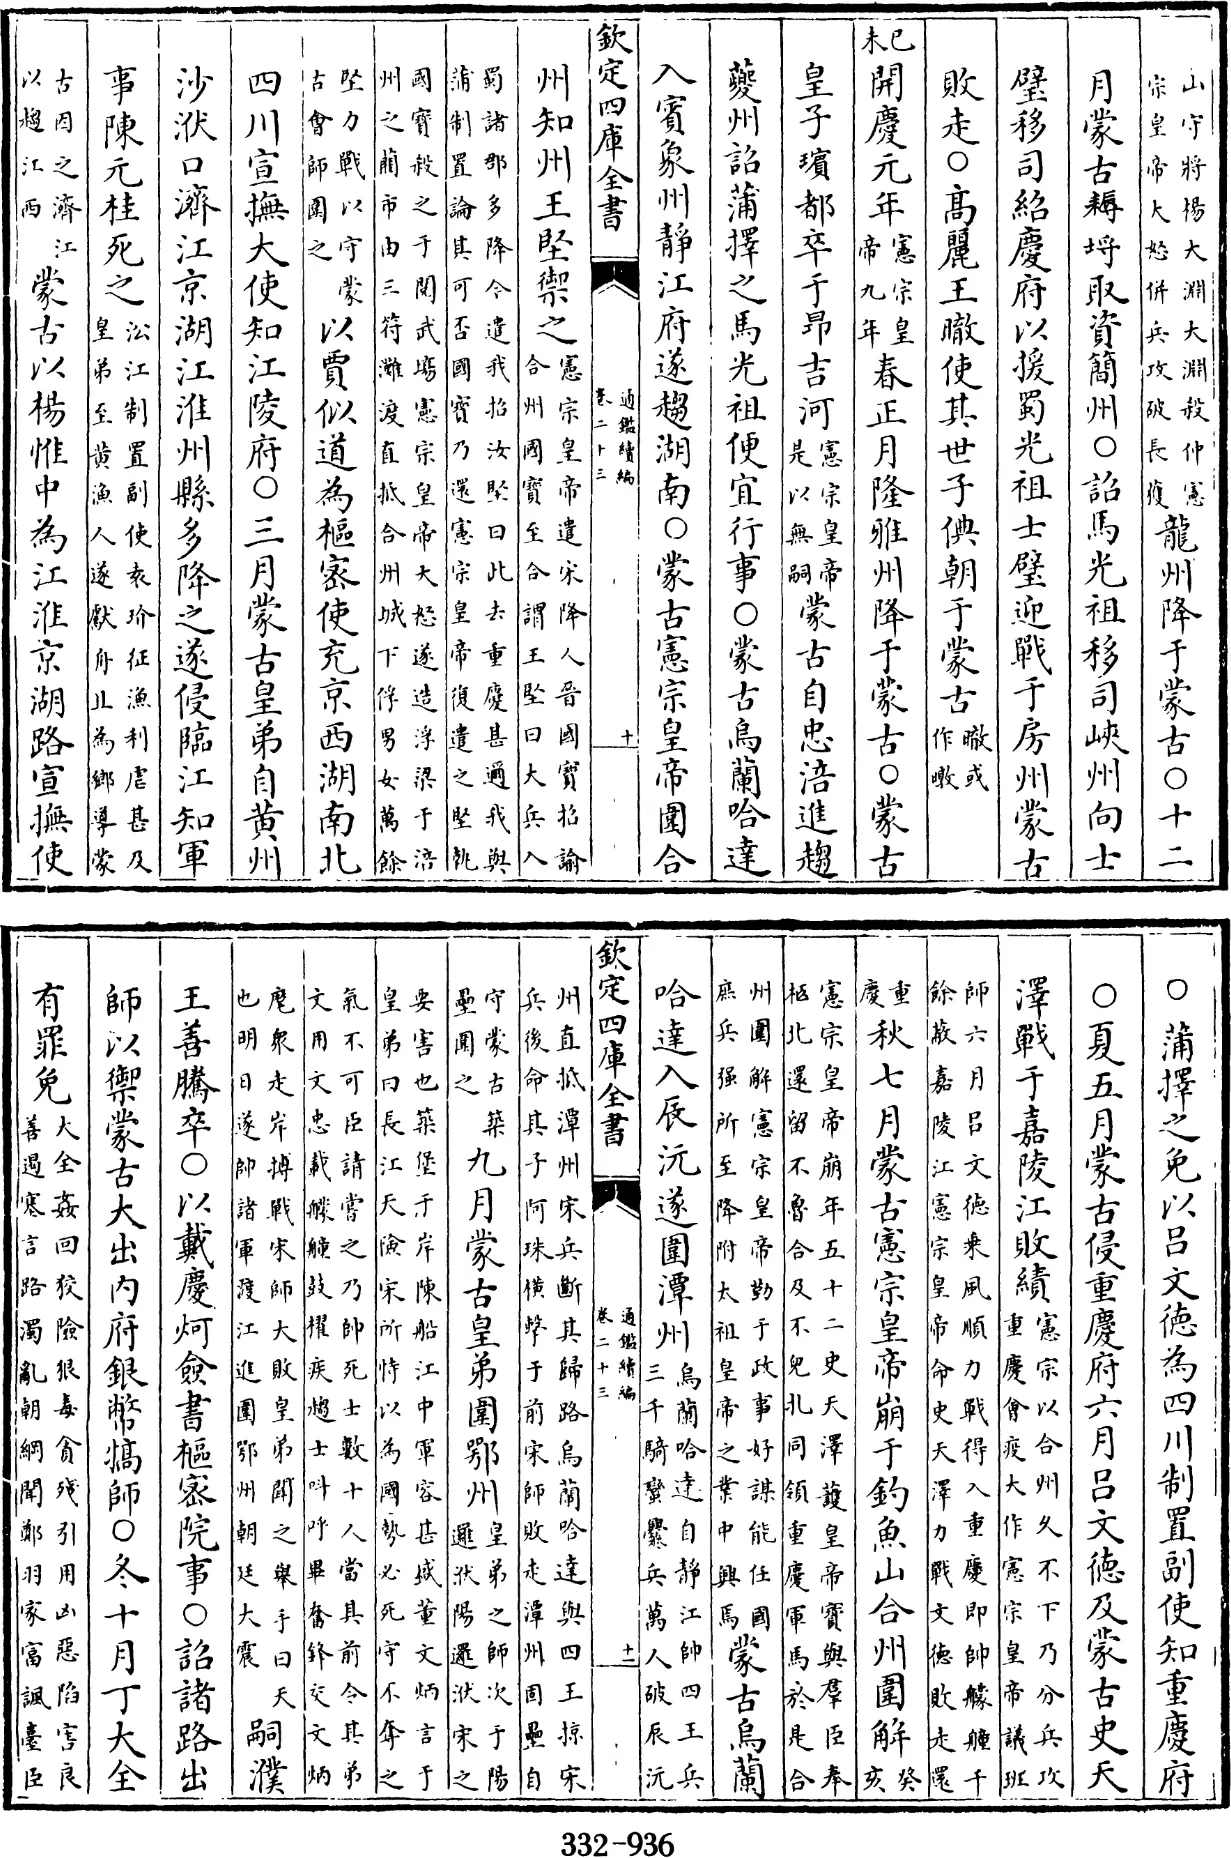 山守將楊大淵大淵殺仲憲
宗皇帝大怒併兵攻破長獲
龍州降于蒙古○十二
月蒙古耨埒取資簡州○詔馬光祖移司峽州向士
璧移司紹慶府以援蜀光祖士璧迎戰于房州蒙古
敗走○高麗王㬚使其世子倎朝于蒙古
㬚或
作暾
己
未
開慶元年
憲宗皇
帝九年
春正月隆雅州降于蒙古○蒙古
皇子璸都卒于昂吉河
憲宗皇帝
是以無嗣
蒙古自忠涪進趨
夔州詔蒲擇之馬光祖便宜行事○蒙古烏蘭哈達
入賓象州靜江府遂趨湖南○蒙古憲宗皇帝圍合
欽定四庫全書
通鑑續編
卷二十三
十
州知州王堅禦之
憲宗皇帝遣宋降人晉國寶招諭
合州國寶至合謂王堅曰大兵入
蜀諸郡多降今遣我招汝堅曰此去重慶甚邇我與
蒲制置論其可否國寶乃還憲宗皇帝復遣之堅執
國寶殺之于閱武場憲宗皇帝大怒遂造浮梁于涪
州之藺市由三符灘渡直抵合州城下俘男女萬餘
堅力戰以守蒙
古會師圍之
以賈似道為樞密使充京西湖南北
四川宣撫大使知江陵府○三月蒙古皇弟自黄州
沙洑口濟江京湖江淮州縣多降之遂侵臨江知軍
事陳元桂死之
㳂江制置副使袁玠征漁利虐甚及
皇弟至黄漁人遂獻舟且為鄉導蒙
古因之濟江
以趨江西
蒙古以楊惟中為江淮京湖路宣撫使
○蒲擇之免以呂文德為四川制置副使知重慶府
○夏五月蒙古侵重慶府六月呂文德及蒙古史天
澤戰于嘉陵江敗績
憲宗以合州久不下乃分兵攻
重慶會疫大作憲宗皇帝議班
師六月呂文德乗風順力戰得入重慶即帥艨艟千
餘蔽嘉陵江憲宗皇帝命史天澤力戰文德敗走還
重
慶
秋七月蒙古憲宗皇帝崩于釣魚山合州圍解
癸
亥
憲宗皇帝崩年五十二史天澤護皇帝寶與羣臣奉
柩北還留不魯合及不兒扎同領重慶軍馬於是合
州圍解憲宗皇帝勤于政事好謀能任國
庶兵强所至降附太祖皇帝之業中興焉
蒙古烏蘭
哈達入辰沅遂圍潭州
烏蘭哈達自靜江帥四王兵
三千騎蠻㸑兵萬人破辰沅
州直抵潭州宋兵斷其歸路烏蘭哈達與四王掠宋
兵後命其子阿珠横擊于前宋師敗走潭州固壘自
守蒙古築
壘圍之
九月蒙古皇弟圍鄂州
皇弟之師次于陽
邏洑陽邏洑宋之
要害也築堡于岸陳船江中軍容甚盛董文炳言于
皇弟曰長江天險宋所恃以為國勢必死守不奪之
氣不可臣請嘗之乃帥死士數十人當其前令其弟
文用文忠載艨艟鼓櫂疾趨士呌呼畢奮鋒交文炳
麾衆走岸搏戰宋師大敗皇弟聞之舉手曰天
也明日遂帥諸軍渡江進圍鄂州朝廷大震
嗣濮
王善騰卒○以戴慶炣僉書樞密院事○詔諸路出
師以禦蒙古大出内府銀幣犒師○冬十月丁大全
有罪免
大全姦回狡險狠毒貪殘引用凶惡陷害良
善遏塞言路濁亂朝綱聞鄭羽家富諷臺臣
欽定四庫全書
通鑑續編
卷二十三
十一
332-936